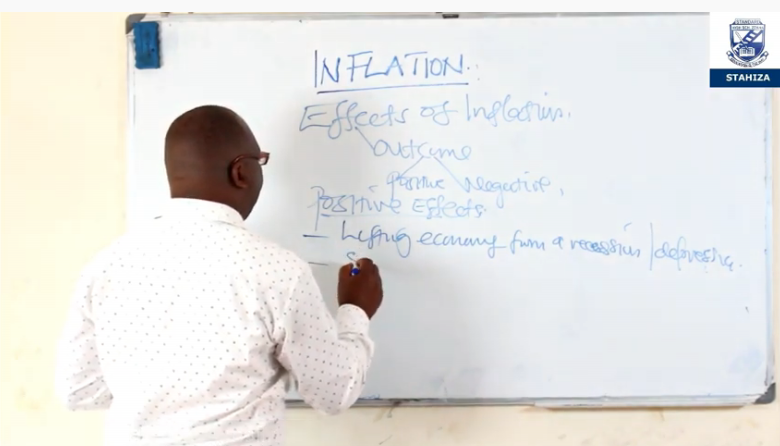 INFLATION.
Effects of Inflation.
Outcome
Positive Negative,
Positive Effects.
- Lifting economy from a recession/depression.
- S
STAHIZA